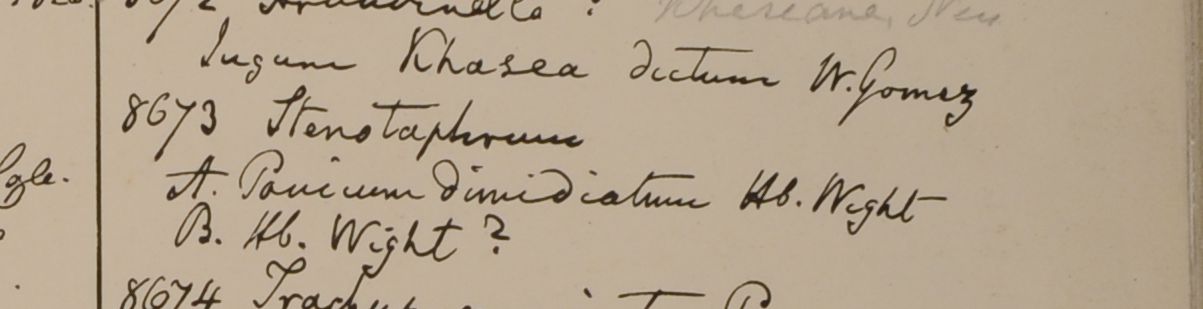 Khaseana, Neu
Jugum Khasea dictum W. Gomez
8673 Stenotaphrum
A. Panicum dimidiatum Hb. Wight
B. Hb. Wight ?
8674